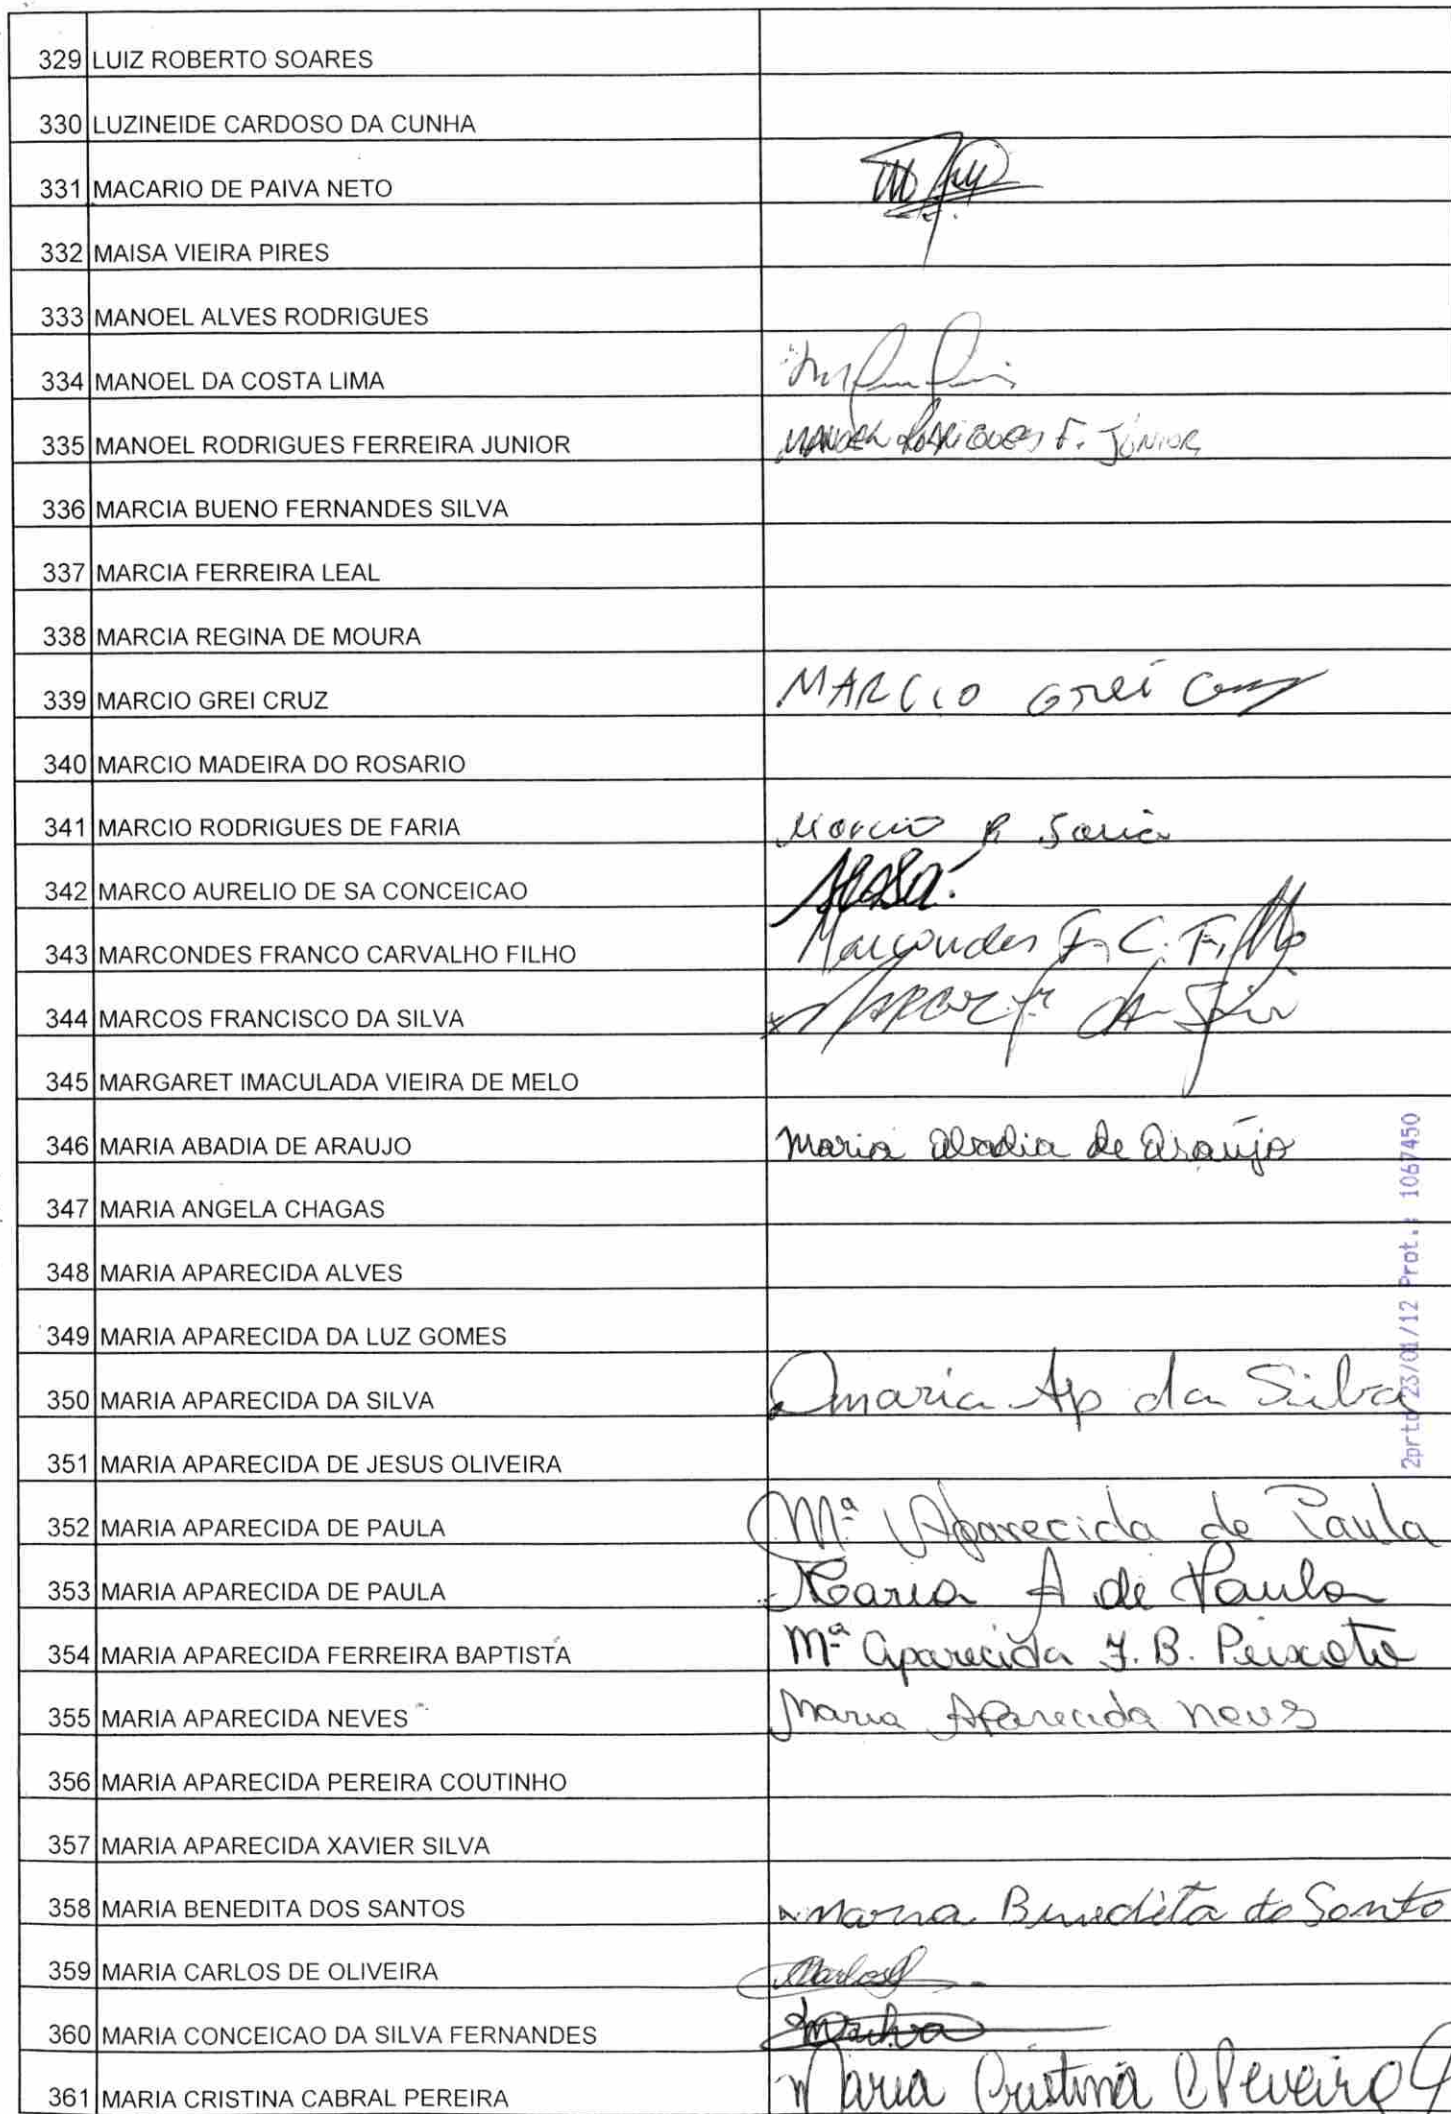 329 LUIZ ROBERTO SOARES
330 LUZINEIDE CARDOSO DA CUNHA
331 MACARIO DE PAIVA NETO
332 MAISA VIEIRA PIRES
333 MANOEL ALVES RODRIGUES
334 MANOEL DA COSTA LIMA
335 MANOEL RODRIGUES FERREIRA JUNIOR MANOEL RODRIGUES F. JÚNIOR
336 MARCIA BUENO FERNANDES SILVA
337 MARCIA FERREIRA LEAL
338 MARCIA REGINA DE MOURA
339 MARCIO GREI CRUZ MARCIO Grei Cruz
340 MARCIO MADEIRA DO ROSARIO
341 MARCIO RODRIGUES DE FARIA Marcio R Faria
342 MARCO AURELIO DE SA CONCEICAO
343 MARCONDES FRANCO CARVALHO FILHO Marcondes F. C. Filho
344 MARCOS FRANCISCO DA SILVA
345 MARGARET IMACULADA VIEIRA DE MELO
346 MARIA ABADIA DE ARAUJO Maria Abadia de Araújo
347 MARIA ANGELA CHAGAS
348 MARIA APARECIDA ALVES
349 MARIA APARECIDA DA LUZ GOMES
350 MARIA APARECIDA DA SILVA Maria Ap da Silva
351 MARIA APARECIDA DE JESUS OLIVEIRA
352 MARIA APARECIDA DE PAULA Mª Aparecida de Paula
353 MARIA APARECIDA DE PAULA Maria A de Paula
354 MARIA APARECIDA FERREIRA BAPTISTA Mª Aparecida F. B. Peixoto
355 MARIA APARECIDA NEVES Maria Aparecida Neves
356 MARIA APARECIDA PEREIRA COUTINHO
357 MARIA APARECIDA XAVIER SILVA
358 MARIA BENEDITA DOS SANTOS Maria Benedita do Santo
359 MARIA CARLOS DE OLIVEIRA
360 MARIA CONCEICAO DA SILVA FERNANDES
361 MARIA CRISTINA CABRAL PEREIRA Maria Cristina C Pereira
2prto 23/01/12 Prot.: 1067450